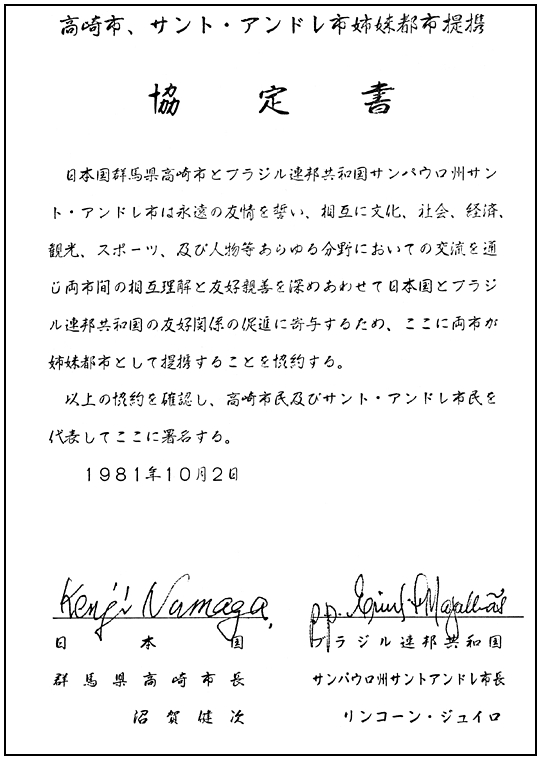 高崎市、サント・アンドレ市姉妹都市提携
協定書
日本国群馬県高崎市とブラジル連邦共和国サンパウロ州サン
ト・アンドレ市は永遠の友情を誓い、相互に文化、社会、経済、
観光、スポーツ、及び人物等あらゆる分野においての交流を通
じ両市間の相互理解と友好親善を深めあわせて日本国とブラジ
ル連邦共和国の友好関係の促進に寄与するため、ここに両市が
姉妹都市として提携することを協約する。
以上の協約を確認し、高崎市民及びサント・アンドレ市民を
代表してここに署名する。
1981年10月2日
Kenji Numaga
p.p. Magalhães
日本国
ブラジル連邦共和国
群馬県高崎市長
サンパウロ州サントアンドレ市長
沼賀健次
リンコーン・ジュイロ